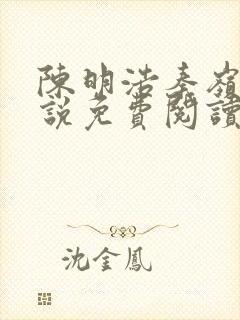 陳明浩秦嶺
說免費閱讀
沈金鳳